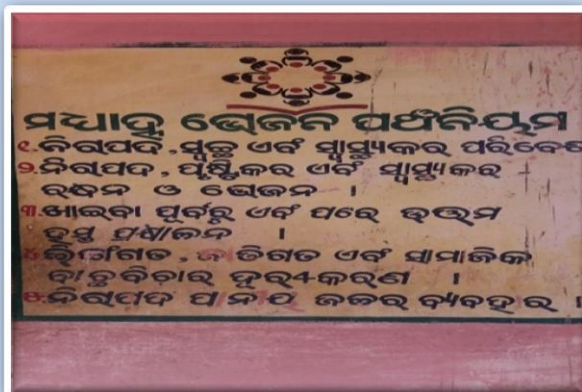 ମଧ୍ୟାହ୍ନ ଭୋଜନ ପଞ୍ଚନିୟମ
୧.ନିରାପଦ,ସ୍ୱଚ୍ଛ ଏବଂ ସ୍ୱାସ୍ଥ୍ୟକର ପରିବେଶ
୨.ନିରାପଦ, ପୁଷ୍ଟିକର ଏବଂ ସ୍ୱାସ୍ଥ୍ୟକର
ରନ୍ଧନ ଓ ଭୋଜନ ।
୩.ଖାଇବା ପୂର୍ବରୁ ଏବଂ ପରେ ଉତ୍ତମ
ହସ୍ତ ପ୍ରକ୍ଷାଳନ ।
୪.ଲିଙ୍ଗଗତ, ଜାତିଗତ ଏବଂ ସାମାଜିକ
ବାଛବିଚାର ଦୂରୀକରଣ ।
୫.ନିରାପଦ ପାନୀୟ ଜଳର ବ୍ୟବହାର ।